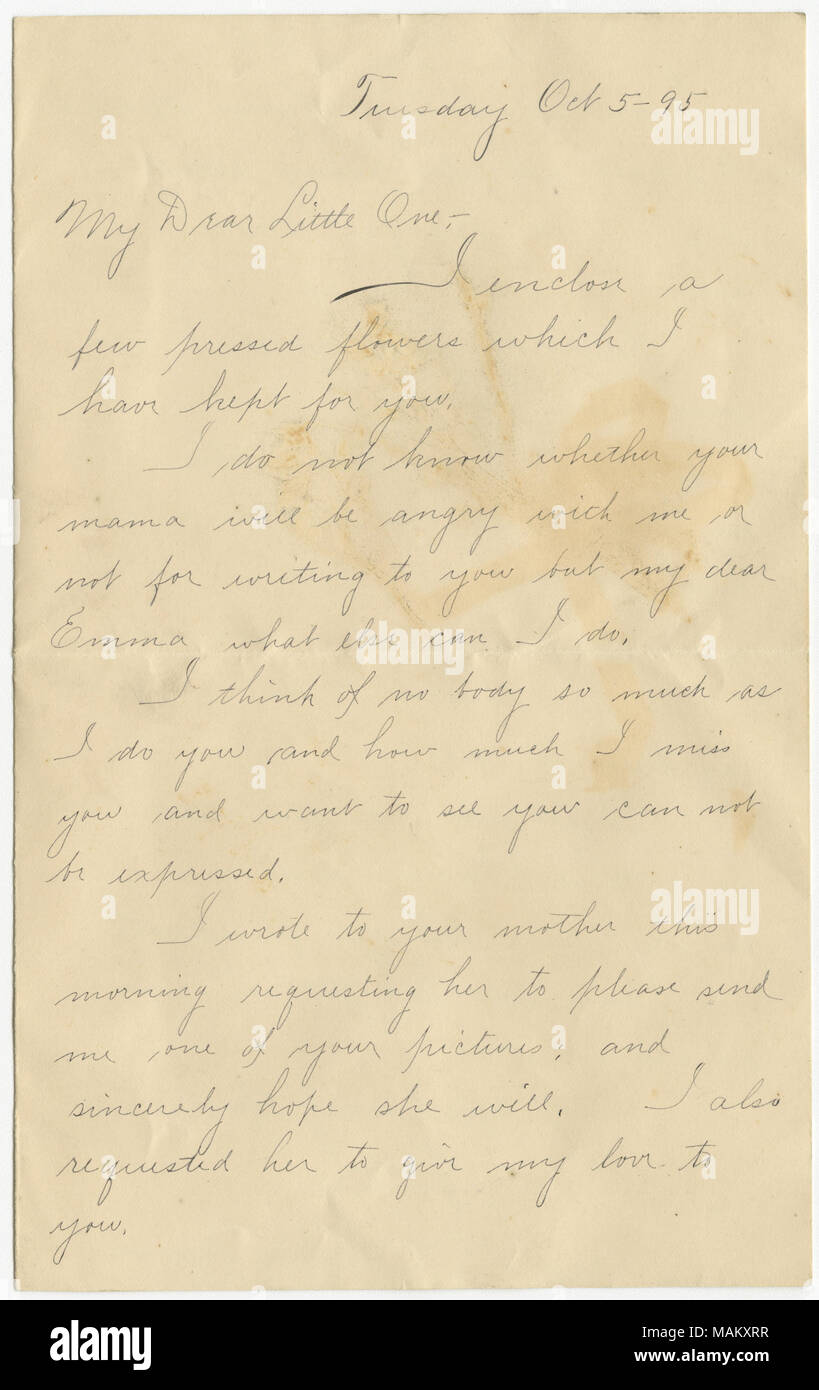 Tuesday Oct 5-95
My Dear Little One,-
I enclose a
few pressed flowers which I
have kept for you.
I do not know whether your
mama will be angry with me or
not for writing to you but my dear
Emma what else can I do.
I think of no body so much as
I do you and how much I miss
you and want to see you can not
be expressed.
I wrote to your mother this
morning requesting her to please send
me one of your pictures, and
sincerely hope she will. I also
requested her to give my love to
you.
alamy
Image ID: MAKXRR
www.alamy.com